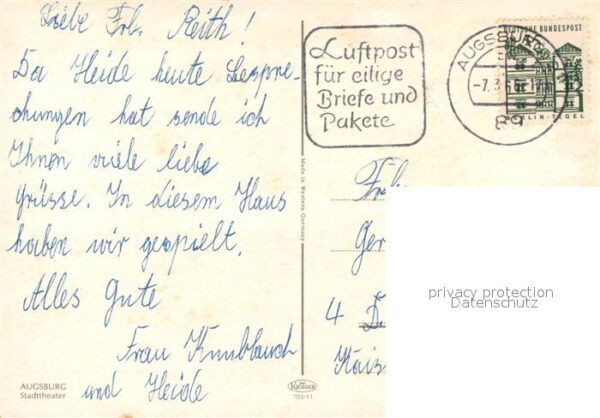 Liebe Frl. Reith!
Da Heide heute Bespre-
chungen hat sende ich
Ihnen viele liebe
Grüsse. In diesem Haus
haben wir gespielt.
Alles Gute
Frau Knublauch
und Heide
AUGSBURG
Stadttheater
Made in Western Germany
Krüger
703/13
Luftpost
für eilige
Briefe und
Pakete
AUGSBURG
89
DEUTSCHE BUNDESPOST
BERLIN-TEGEL
Frl.
Ger
4 D
Kais
privacy protection
Datenschutz